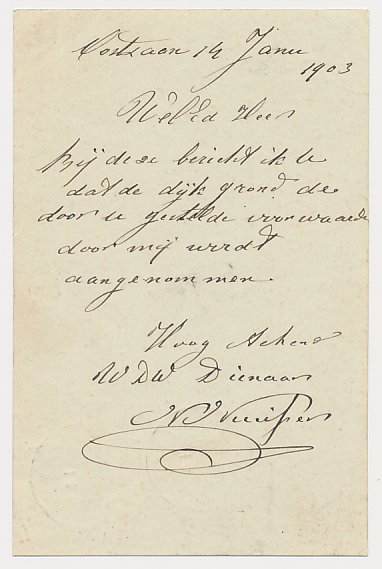 Oostzaan 14 Janu
1903
WelEd Heer
Bij deze bericht ik U
dat de dijk grond de
door u gestelde voorwaarde
door mij wordt
aangenommen.
Hoog Achend
UDW Dienaar